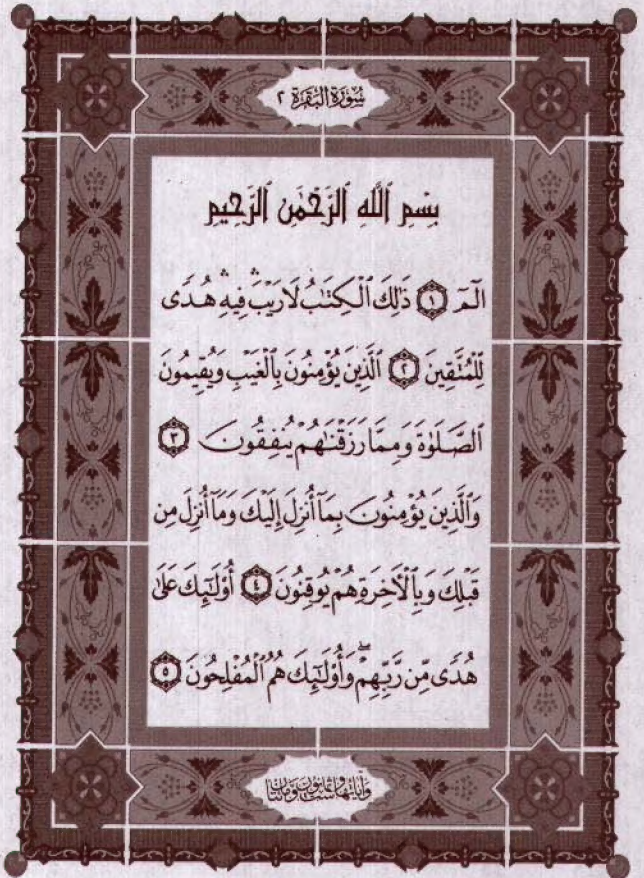 سُورَةُ البَقَرَة ٢
بِسْمِ ٱللَّهِ ٱلرَّحْمَٰنِ ٱلرَّحِيمِ
الٓمٓ ١ ذَٰلِكَ ٱلْكِتَٰبُ لَا رَيْبَۛ فِيهِۛ هُدًى
لِّلْمُتَّقِينَ ٢ ٱلَّذِينَ يُؤْمِنُونَ بِٱلْغَيْبِ وَيُقِيمُونَ
ٱلصَّلَوٰةَ وَمِمَّا رَزَقْنَٰهُمْ يُنفِقُونَ ٣
وَٱلَّذِينَ يُؤْمِنُونَ بِمَآ أُنزِلَ إِلَيْكَ وَمَآ أُنزِلَ مِن
قَبْلِكَ وَبِٱلْأَخِرَةِ هُمْ يُوقِنُونَ ٤ أُو۟لَٰٓئِكَ عَلَىٰ
هُدًى مِّن رَّبِّهِمْۖ وَأُو۟لَٰٓئِكَ هُمُ ٱلْمُفْلِحُونَ ٥
وَآيَاتُهَا سِتٌّ وَثَمَانُونَ وَمِائَتَانِ